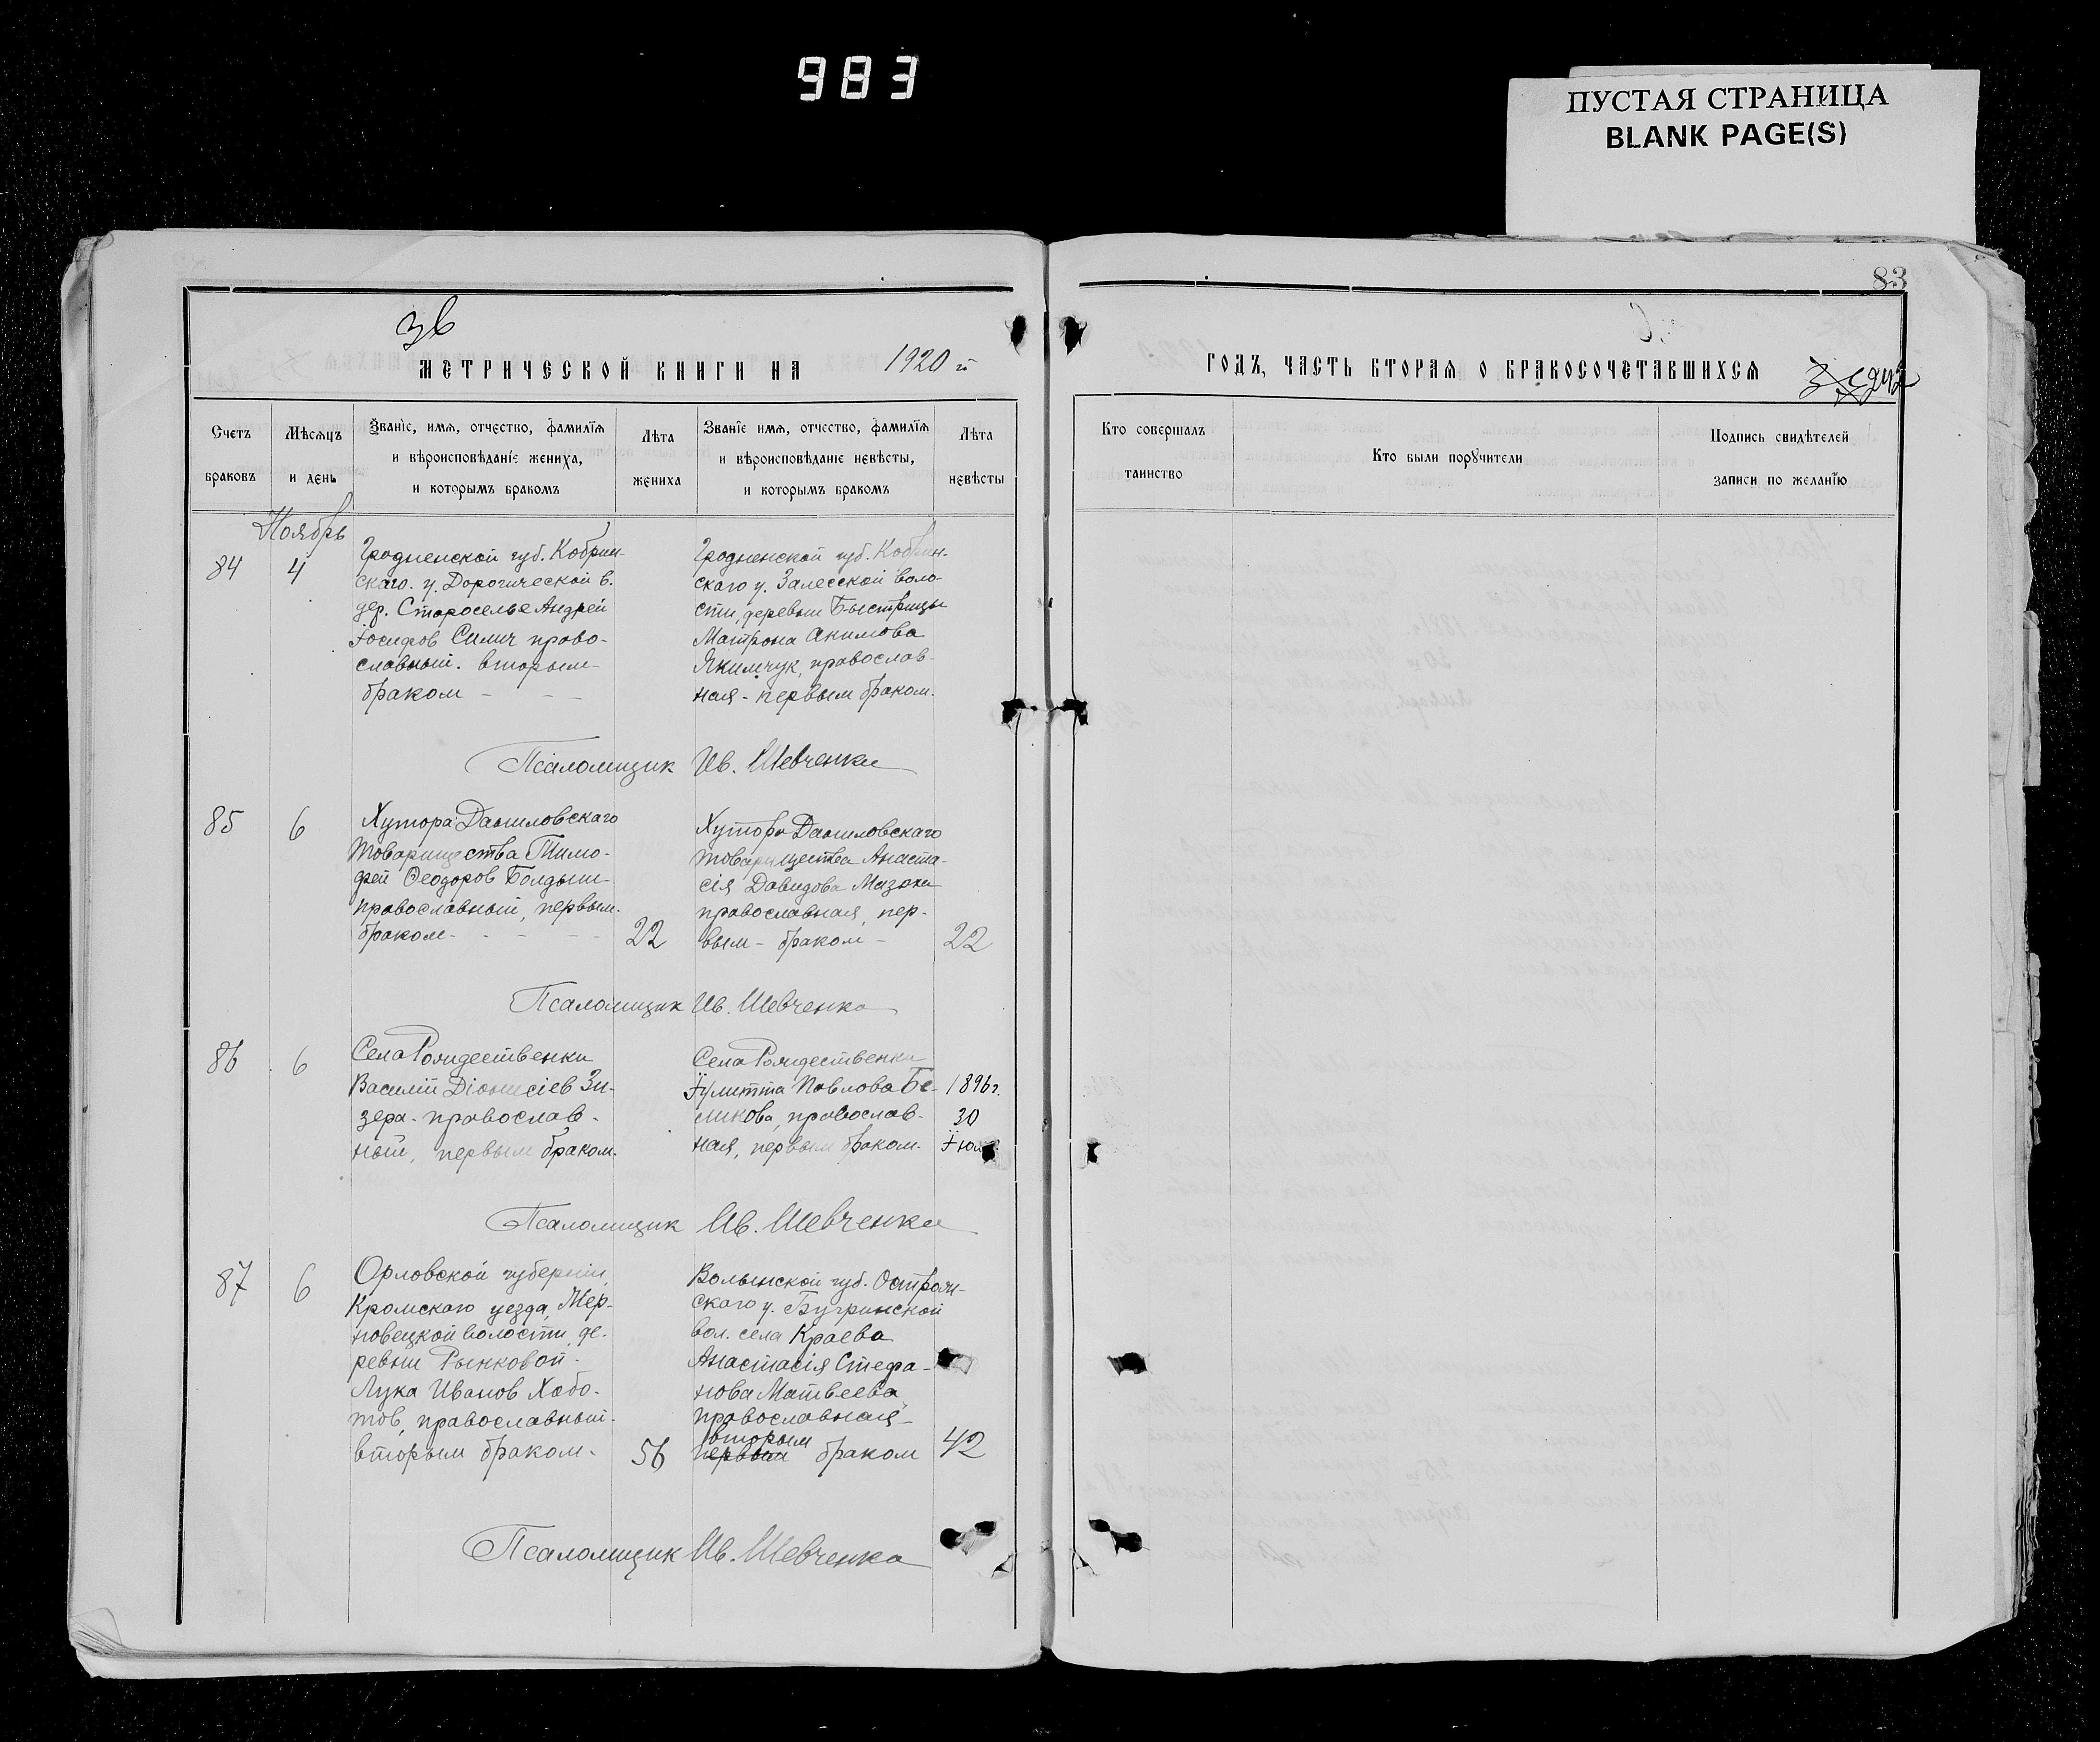 983
ПУСТАЯ СТРАНИЦА
BLANK PAGE(S)
83
Зв
МЕТРИЧЕСКОЙ КНИГИ НА 1920 й
ГОДЪ, ЧАСТЬ ВТОРАЯ О БРАКОСОЧЕТАВШИХСЯ
Счетъ браковъ
Мѣсяцъ и день
Званіе, имя, отчество, фамилія и вѣроисповѣданіе жениха, и которымъ бракомъ
Лѣта жениха
Званіе имя, отчество, фамилія и вѣроисповѣданіе невѣсты, и которымъ бракомъ
Лѣта невѣсты
Кто совершалъ таинство
Кто были поручители
Подпись свидѣтелей записи по желанію
Ноябрь
84
4
Гродненской губ. Кобрин-
скаго. у. Дорогической в.
дер. Староселье Андрей
Іосифов Силич право-
славный. вторым
браком - - -
Гродненской губ. Кобрин-
скаго у. Залесской воло-
сти, деревни Быстрицы
Матрона Акимова
Якимчук, православ-
ная - первым браком.
Псаломщик Ив. Шевченко
85
6
Хутора Даниловскаго
товарищества Тимо-
фей Феодоров Болдын
православный, первым
браком - - - -
22
Хутора Даниловскаго
товарищества Анаста-
сія Давидова Мазоха
православная, пер-
вым - браком -
22
Псаломщик Ив. Шевченко
86
6
Села Рождественки
Василій Діонисіев Зи-
зера - православ-
ный, первым браком.
Села Рождественки
Іулитта Павлова Бе-
ликова, православ-
ная, первым браком.
1896 г.
30
Псаломщик Ив. Шевченко
87
6
Орловской губерніи,
Кромскаго уезда, Мер-
новецкой волости, де-
ревни Рынковой -
Лука Иванов Хобо-
тов, православный -
вторым браком -
56
Волынской губ. Острож-
скаго у. Бугринской
вол. села Краева
Анастасія Стефа-
нова Матвеева
православная -
вторым
первым браком
42
Псаломщик Ив. Шевченко